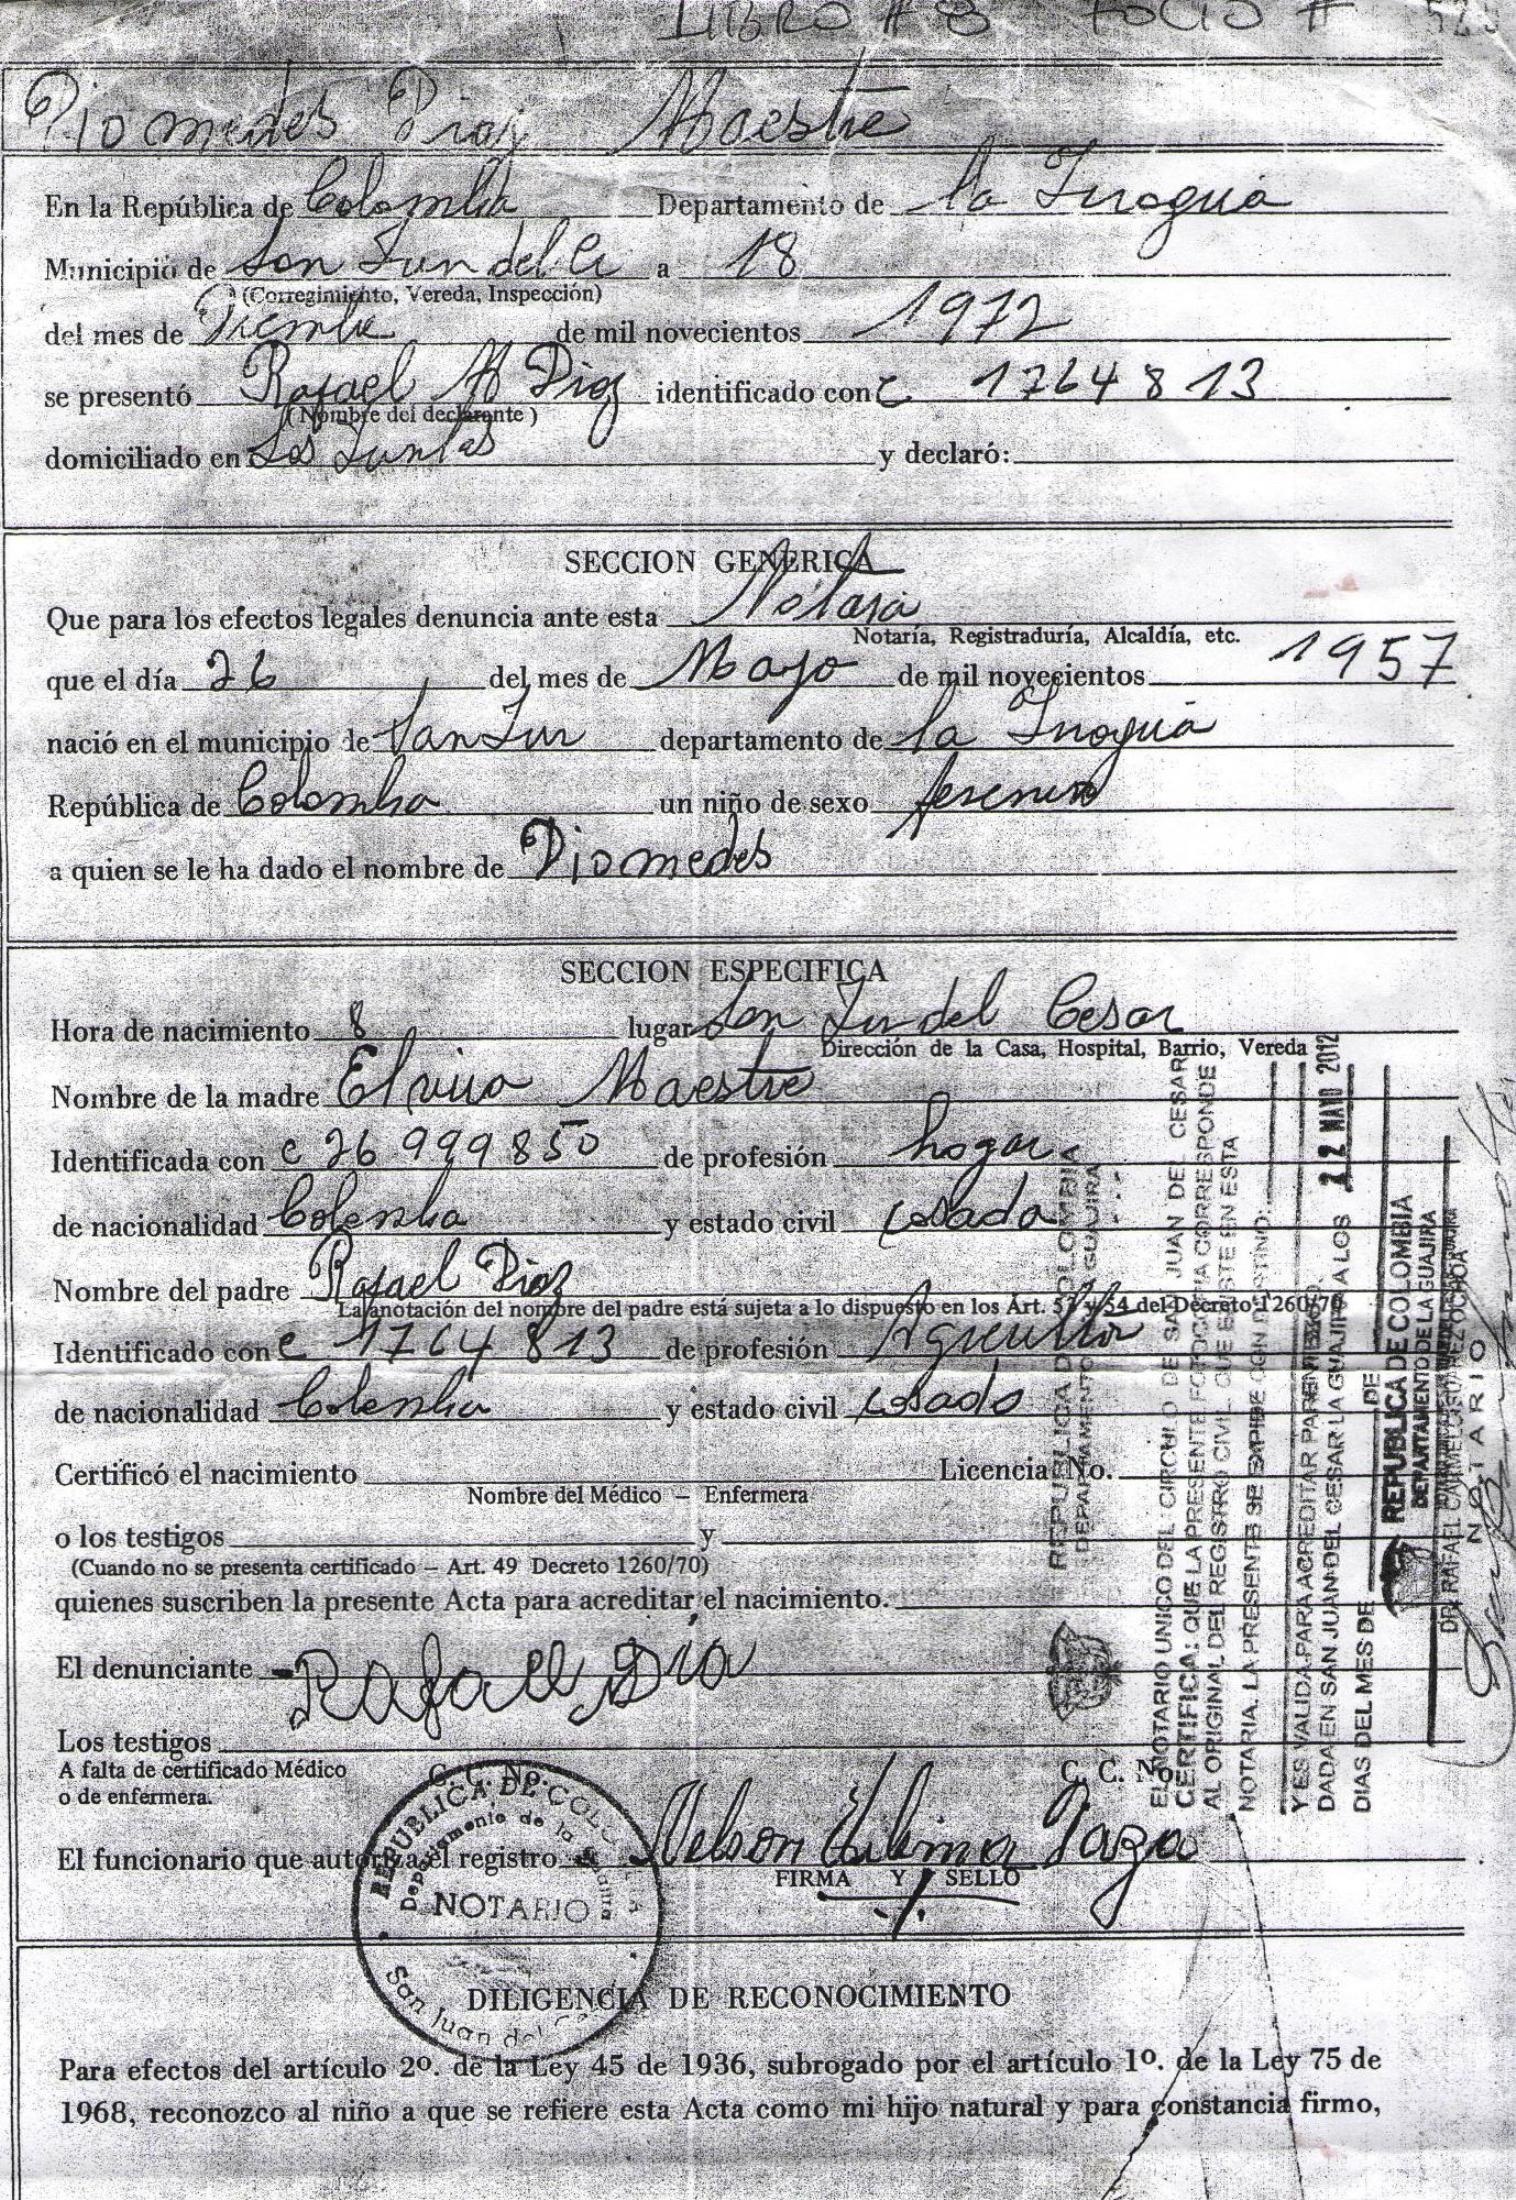 LIBRO # 8 FOLIO #
Diomedes Diaz Maestre
En la República de Colombia Departamento de la
Municipio de San Juan del C a 18
(Corregimiento, Vereda, Inspección)
del mes de de mil novecientos 1972
se presentó Rafael M Diaz identificado con C 1764813
(Nombre del declarante)
domiciliado en y declaró:
SECCION GENERICA
Que para los efectos legales denuncia ante esta Notaria
Notaría, Registraduría, Alcaldía, etc.
que el día 26 del mes de Mayo de mil novecientos 1957
nació en el municipio de San Juan departamento de la
República de Colombia un niño de sexo
a quien se le ha dado el nombre de Diomedes
SECCION ESPECIFICA
Hora de nacimiento 8 lugar San Juan del Cesar
Dirección de la Casa, Hospital, Barrio, Vereda
Nombre de la madre Elvira Maestre
Identificada con c 26999850 de profesión hogar
de nacionalidad Colombia y estado civil casada
Nombre del padre Rafael Diaz
La anotación del nombre del padre está sujeta a lo dispuesto en los Art. 53 y 54 del Decreto 1260/70
Identificado con c 1764813 de profesión Agricultor
de nacionalidad Colombia y estado civil casado
Certificó el nacimiento Licencia No.
Nombre del Médico – Enfermera
o los testigos y
(Cuando no se presenta certificado – Art. 49 Decreto 1260/70)
quienes suscriben la presente Acta para acreditar el nacimiento.
El denunciante Rafael Dia
Los testigos
A falta de certificado Médico C. C. No. C. C. No.
o de enfermera.
El funcionario que autoriza el registro Nelson
FIRMA Y SELLO
REPUBLICA DE COLOMBIA
Departamento de la Guajira
NOTARIO
San Juan del
DILIGENCIA DE RECONOCIMIENTO
Para efectos del artículo 2º. de la Ley 45 de 1936, subrogado por el artículo 1º. de la Ley 75 de
1968, reconozco al niño a que se refiere esta Acta como mi hijo natural y para constancia firmo,
REPUBLICA DE COLOMBIA
DEPARTAMENTO GUAJIRA
EL NOTARIO UNICO DEL CIRCULO DE SAN JUAN DEL CESAR
CERTIFICA: QUE LA PRESENTE FOTOCOPIA CORRESPONDE
AL ORIGINAL DEL REGISTRO CIVIL QUE EXISTE EN ESTA
NOTARIA. LA PRESENTE SE EXPIDE CON DESTINO:
Y ES VALIDA PARA ACREDITAR PARENTESCO.
DADA EN SAN JUAN DEL CESAR LA GUAJIRA A LOS 22 MAYO 2012
DIAS DEL MES DE DE
REPUBLICA DE COLOMBIA
DEPARTAMENTO DE LA GUAJIRA
DR. RAFAEL CARMELO SUAREZ OCHOA
NOTARIO